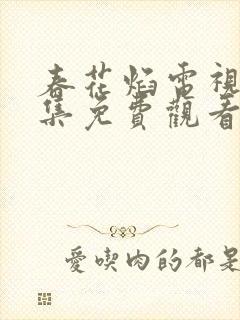 春花焰電視
集免費觀看
愛喫肉的都是